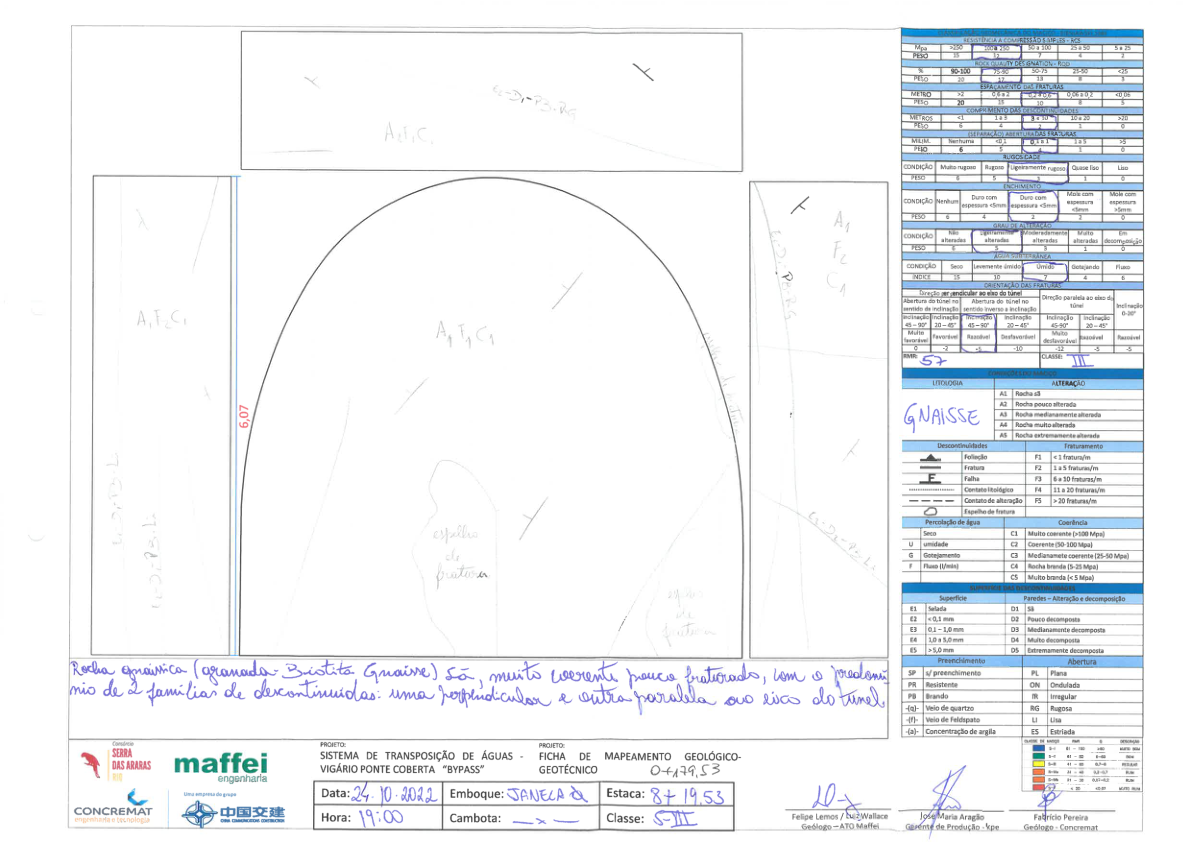 A1F1C1
A1F2C1
A1F1C1
A1
F2
C1
6,07
espelho
de
fratura
espelho
de
fratura
Rocha gnaissica (granada-Biotita Gnaisse) Sã, muito coerente pouco fraturado, com o predomí
nio de 2 famílias de descontinuidas: uma perpendicular e outra paralela ao eixo do túnel
RESISTÊNCIA A COMPRESSÃO SIMPLES - RCS
Mpa >250 100 a 250 50 a 100 25 a 50 5 a 25
PESO 15 12 7 4 2
ROCK QUALITY DESIGNATION - RQD
% 90-100 75-90 50-75 25-50 <25
PESO 20 17 13 8 3
ESPAÇAMENTO DAS FRATURAS
METRO >2 0,6 a 2 0,2 a 0,6 0,06 a 0,2 <0,06
PESO 20 15 10 8 5
COMPRIMENTO DAS DESCONTINUIDADES
METROS <1 1 a 3 3 a 10 10 a 20 >20
PESO 6 4 2 1 0
(SEPARAÇÃO) ABERTURA DAS FRATURAS
MILIM. Nenhuma <0,1 0,1 a 1 1 a 5 >5
PESO 6 5 4 1 0
RUGOSIDADE
CONDIÇÃO Muito rugoso Rugoso Ligeiramente rugoso Quase liso Liso
PESO 6 5 3 1 0
ENCHIMENTO
CONDIÇÃO Nenhum Duro com espessura <5mm Duro com espessura <5mm Mole com espessura <5mm Mole com espessura >5mm
PESO 6 4 2 2 0
GRAU DE ALTERAÇÃO
CONDIÇÃO Não alteradas Ligeiramente alteradas Moderadamente alteradas Muito alteradas Em decomposição
PESO 6 5 3 1 0
ÁGUA SUBTERRÂNEA
CONDIÇÃO Seco Levemente úmido Úmido Gotejando Fluxo
INDICE 15 10 7 4 6
ORIENTAÇÃO DAS FRATURAS
Direção perpendicular ao eixo do túnel Direção paralela ao eixo do túnel Inclinação 0-20°
Abertura do túnel no sentido de inclinação Abertura do túnel no sentido inverso a inclinação
Inclinação 45 – 90° Inclinação 20 – 45° Inclinação 45 – 90° Inclinação 20 – 45° Inclinação 45-90° Inclinação 20 – 45°
Muito favorável Favorável Razoável Desfavorável Muito desfavorável Razoável Razoável
0 -2 -5 -10 -12 -5 -5
RMR: 57 CLASSE: III
LITOLOGIA ALTERAÇÃO
GNAISSE
A1 Rocha sã
A2 Rocha pouco alterada
A3 Rocha medianamente alterada
A4 Rocha muito alterada
A5 Rocha extremamente alterada
Descontinuidades Fraturamento
Foliação F1 < 1 fratura/m
Fratura F2 1 a 5 fraturas/m
F Falha F3 6 a 10 fraturas/m
Contato litológico F4 11 a 20 fraturas/m
Contato de alteração F5 > 20 fraturas/m
Espelho de fratura
Percolação de água Coerência
Seco C1 Muito coerente (>100 Mpa)
U umidade C2 Coerente (50-100 Mpa)
G Gotejamento C3 Medianamete coerente (25-50 Mpa)
F Fluxo (l/min) C4 Rocha branda (5-25 Mpa)
C5 Muito branda (< 5 Mpa)
Superfície Paredes – Alteração e decomposição
E1 Selada D1 Sã
E2 < 0,1 mm D2 Pouco decomposta
E3 0,1 – 1,0 mm D3 Medianamente decomposta
E4 1,0 a 5,0 mm D4 Muito decomposta
E5 > 5,0 mm D5 Extremamente decomposta
Preenchimento Abertura
SP s/ preenchimento PL Plana
PR Resistente ON Ondulada
PB Brando IR Irregular
-(q)- Veio de quartzo RG Rugosa
-(f)- Veio de Feldspato LI Lisa
-(a)- Concentração de argila ES Estriada
Consórcio
SERRA
DAS ARARAS
RIO
maffei
engenharia
CONCREMAT
engenharia e tecnologia
Uma empresa do grupo
中国交建
CHINA COMMUNICATIONS CONSTRUCTION
PROJETO:
SISTEMA DE TRANSPOSIÇÃO DE ÁGUAS -
VIGÁRIO PONTE COBERTA “BYPASS”
PROJETO:
FICHA DE MAPEAMENTO GEOLÓGICO-
GEOTÉCNICO 0+179,53
Data: 24.10.2022 Emboque: JANELA Estaca: 8+19.53
Hora: 19:00 Cambota: — x — Classe: S-III
Felipe Lemos / Luiz Wallace
Geólogo – ATO Maffei
José Maria Aragão
Gerente de Produção - kpe
Fabrício Pereira
Geólogo - Concremat